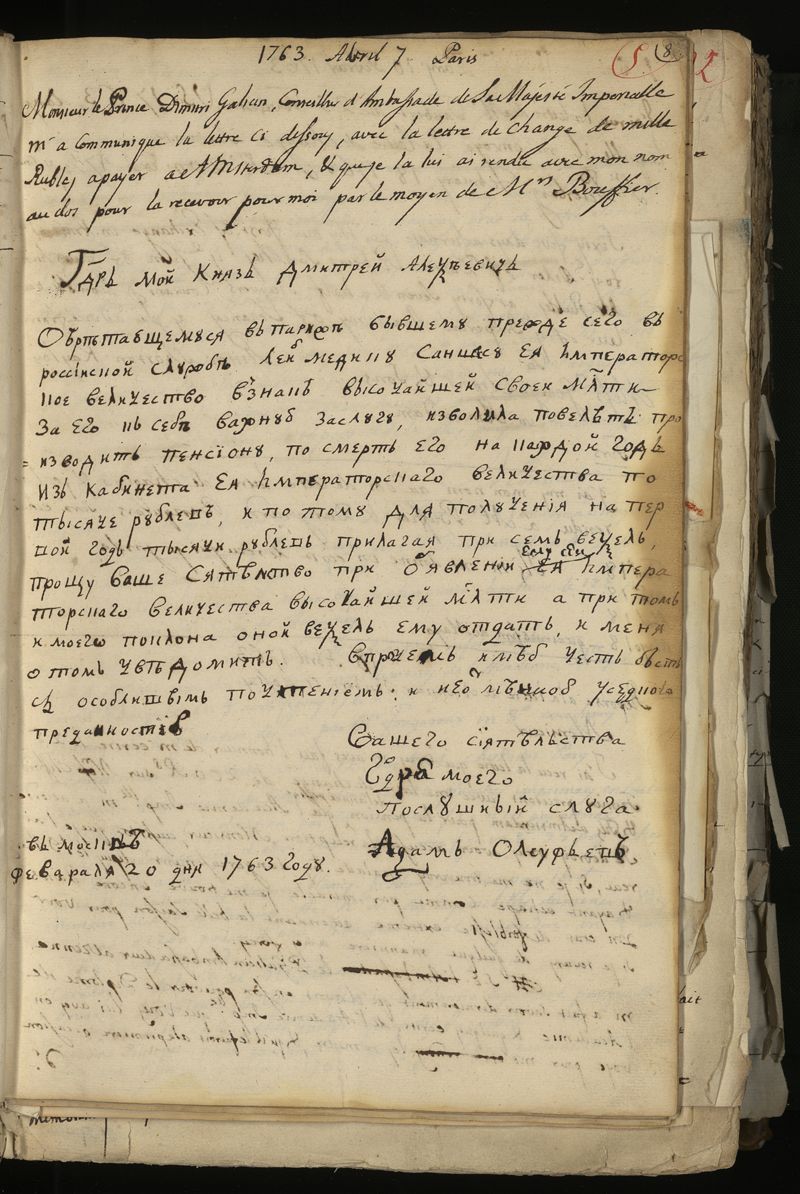 1763. Avril 7 Paris
8
Monsieur le Prince Dimitri Galizin, Conseiller d'Ambassade de Sa Majesté Imperialle
m'a communique la lettre ci dessous, avec la lettre de change de mille
Rubles a payer a Amsterdam, & que je la lui ai rendue avec mon nom
au dos pour la recevoir pour moi par le moyen de Mrs Bouffier.
Гдрь мой Князь Дмитрей Алецѣевичь
Обрѣтающемуся въ парижѣ бывшему прежде сего въ
россійской службѣ Лейб медику Саншесу Ея Императорс
кое величество въ знакъ высочайшей своей млти
За Его къ себѣ важную заслугу, изволила повелѣть про
изводить пенсіону, по смерть его на каждой годъ
Изъ Кабинета Ея Императорскаго величества по
тысяче рублевъ, и по тому для полученія на пер
вой годъ тысячи рублевъ прилагая при семъ веѯель,
Прошу ваше Сятѣлство при обявленіи Ему сей Ея Импера
торскаго величества высочайшей млти а при томъ
и моего поклона оной веѯель Ему отдать, и меня
о томъ увѣдомить. Впрочемъ имѣю честь быть
съ особливымъ почтеніемъ и
преданностію
Вашего сіятѣльства
Гдря моего
Послушный слуга
Адамъ Олсуфьевъ
въ москвѣ
Февраля 20 дня 1763 Году.